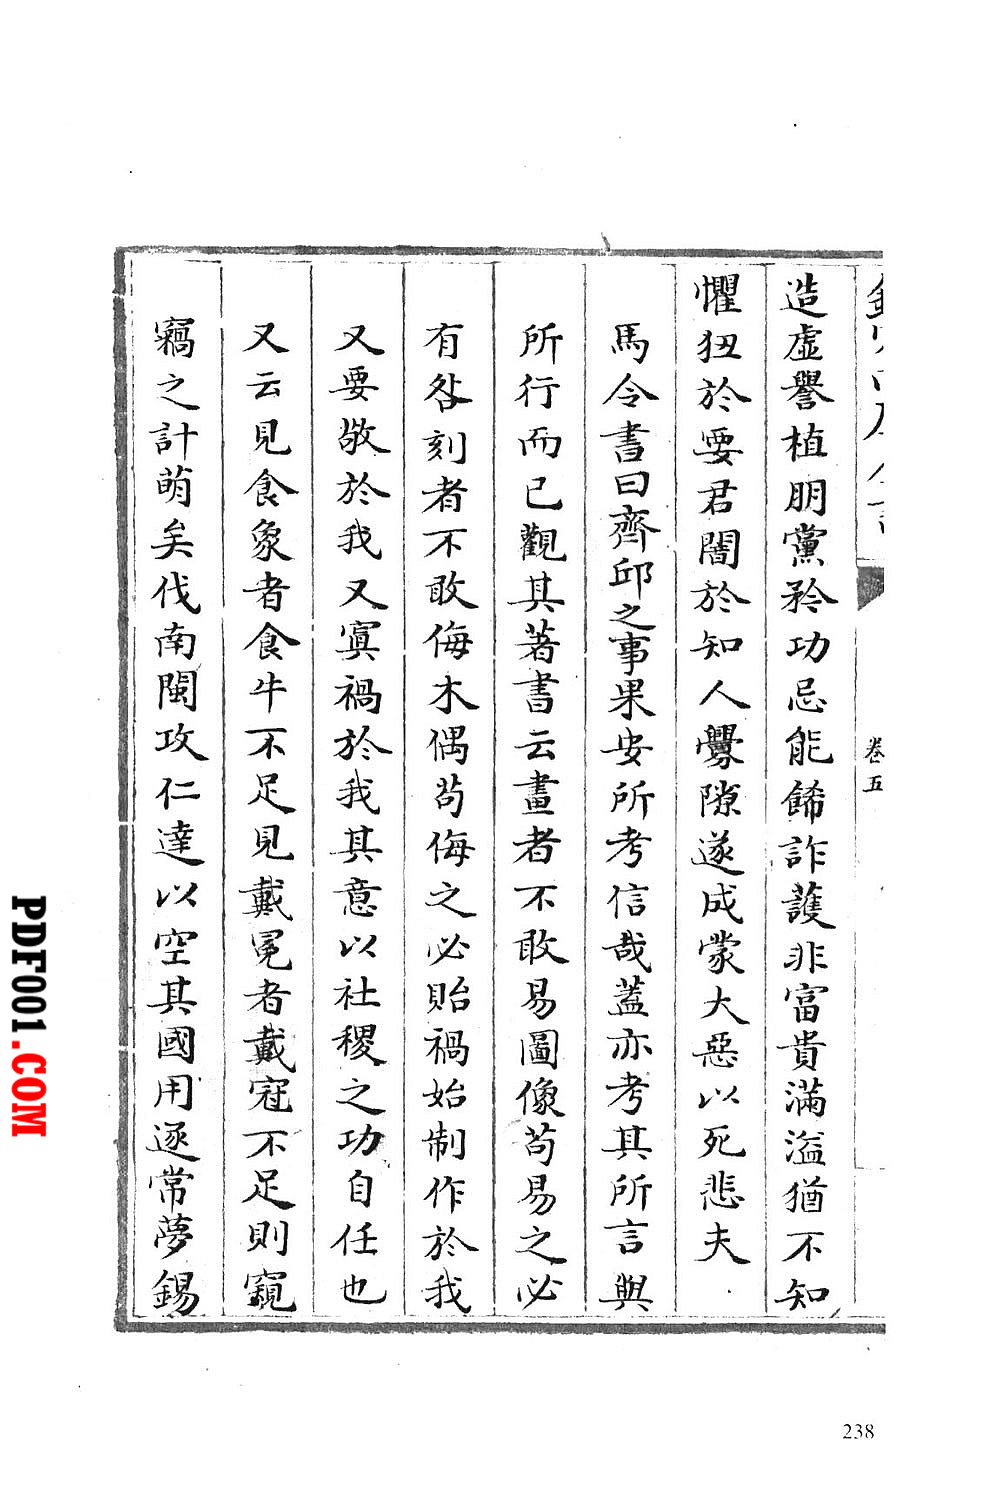 造虛譽植朋黨矜功忌能餙詐護非富貴滿溢猶不知
懼狃於要君闇於知人釁隙遂成蒙大惡以死悲夫
馬令書曰齊邱之事果安所考信哉蓋亦考其所言與
所行而已觀其著書云畫者不敢易圖像苟易之必
有咎刻者不敢侮木偶苟侮之必貽禍始制作於我
又要敬於我又寘禍於我其意以社稷之功自任也
又云見食象者食牛不足見戴冕者戴冠不足則窺
竊之計萌矣伐南閩攻仁達以空其國用逐常夢錫
卷五
238
PDF001.COM